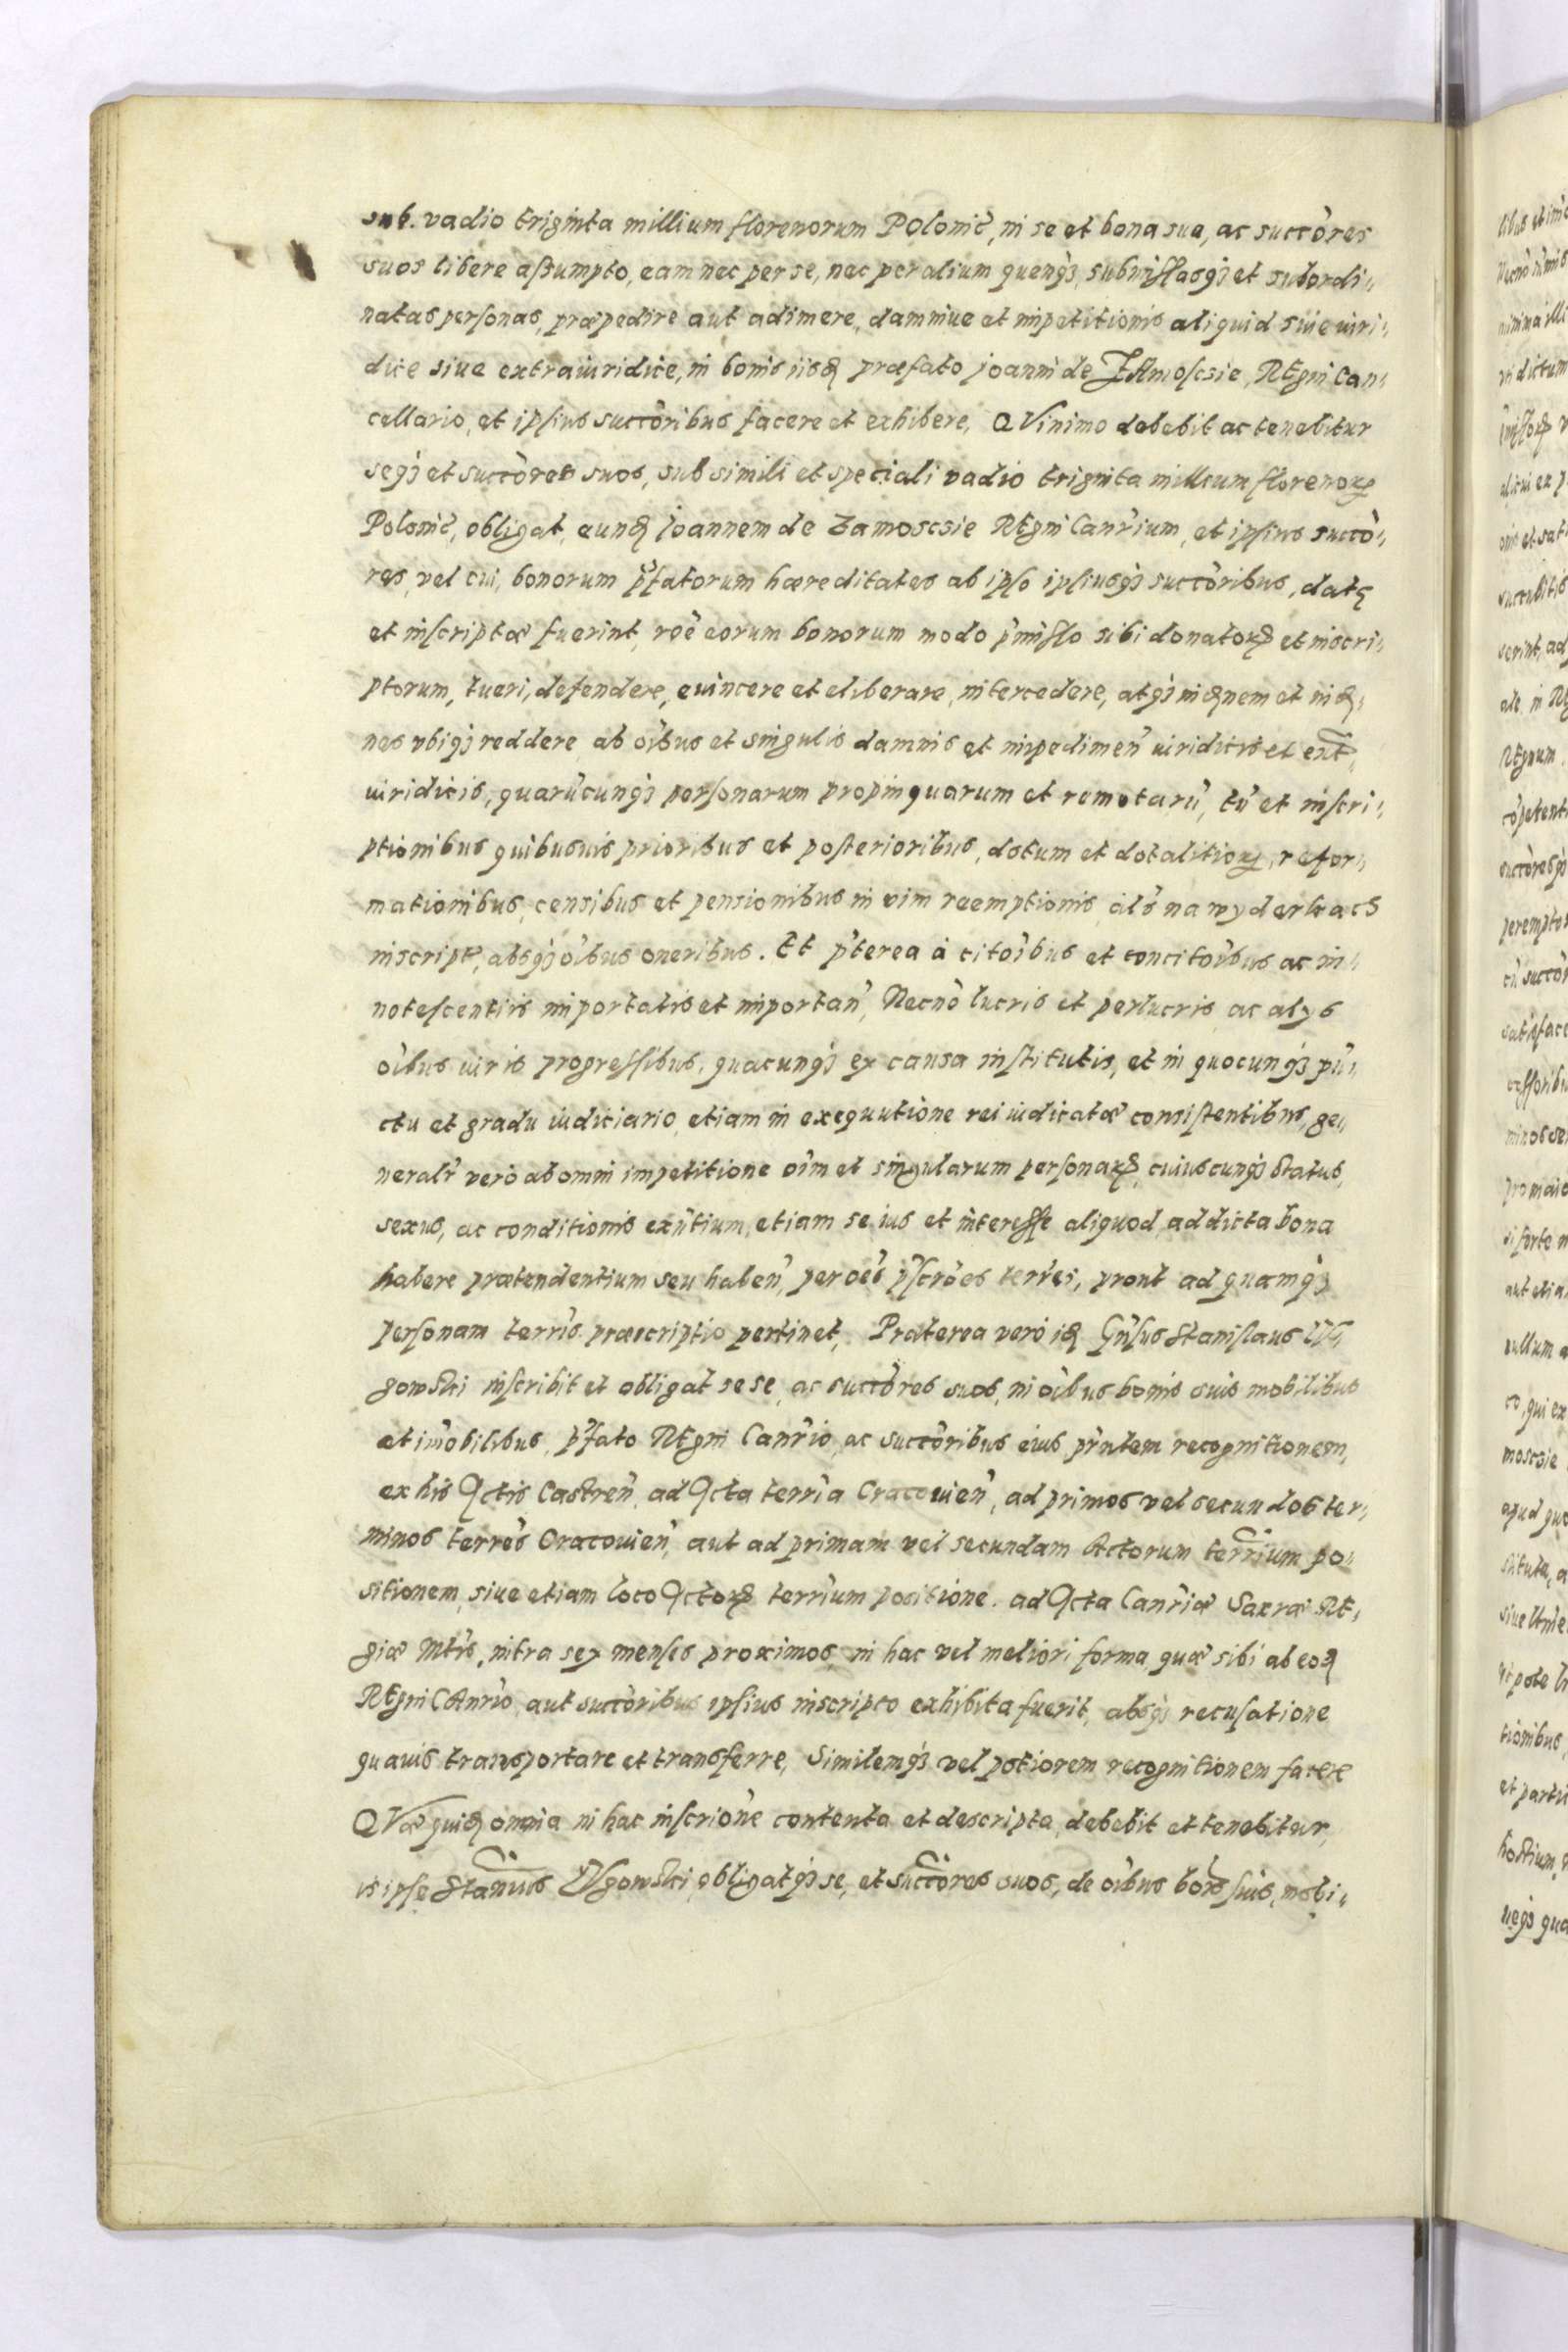 sub vadio triginta millium florenorum Polonic̃, in se et bona sua, ac succõres
suos libere aßumpto, eam nec per se, nec per alium quenq́ʒ, submissasq́ʒ et subordi„
natas personas, præpedire aut adimere, damniue et impetitionis aliquid siue iuri„
dice siue extraiuridice, in bonis iisꝺ præfato Joanni de ZAmoscsie, REgni Can„
cellario, et ipsius succõribus facere et exhibere, QVinimo debebit ac tenebitur
seq́ʒ et succõres suos, sub simili et speciali vadio triginta millium florenoꝝ
Polonic̃, obligat, eunꝺ Joannem de Zamoscsie REgni Canr̃ium, et ipsius succõ„
res, vel cui, bonorum p̃fatorum hæreditates ab ipso ipsiusq́ʒ succõribus, datę
et inscriptæ fuerint, rõe eorum bonorum modo p̃misso sibi donatoꝝ et inscri„
ptorum, tueri, defendere, euincere et eliberare, intercedere, atq́ʒ inꝺnem et inꝺ„
nes vbiq́ʒ reddere, ab oĩbus et singulis damnis et impedimen̄ iuridicis et ext̃„
iuridicis, quarũcunq́ʒ personarum propinquarum et remotarũ, tũ et inscri„
ptionibus quibusuis prioribus et posterioribus, dotum et dotalitioꝝ, refor„
mationibus, censibus et pensionibus in vim reemptionis, al̃s na wyderkacs
inscript̃, absq́ʒ oĩbus oneribus. Et p̃terea à citõibus et concitõibus ac in„
notescentiis importatis et importan̄, Necnõ lucris et perlucris, ac alys
oĩbus iuris progressibus, quacunq́ʒ ex causa institutis, et in quocunq́ʒ pũ„
ctu et gradu iudiciario, etiam in exequutione rei iudicatæ consistentibus, ge„
neralr̃ verò ab omni impetitione oĩm et singularum personaꝝ, cuiuscunq́ʒ status,
sexus, ac conditionis exñtium, etiam se ius et interesse aliquod, ad dicta bona
habere prætendentium seu haben̄, per oẽs p̃scrões terr̃es, prout ad quamq́ʒ
personam terr̃is præscriptio pertinet, Præterea verò iꝺ Gn̄sus Stanislaus VL„
gowski inscribit et obligat sese, ac succõres suos, in oĩbus bonis suis mobilibus
et im̃obilibus, p̃fato REgni Canr̃io, ac succõribus eius, pñtem recognitionem,
ex his Actis Castren̄, ad Acta terr̃ia Cracouien̄, ad primos vel secundos ter„
minos terr̃es Cracouien̄, aut ad primam vel secundam Actorum terr̃ium po„
sitionem, siue etiam loco Actoꝝ terr̃ium positione, ad Acta Canr̃iæ Sacræ RE„
giæ Mt̃is, intra sex menses proximos, in hac vel meliori forma, quæ sibi ab eoꝺ
REgni CAnr̃io, aut succõribus ipsius inscripto exhibita fuerit, absq́ʒ recusatione
quauis transportare et transferre, Similemq́ʒ vel potiorem recognitionem facere
QVæ quiꝺ omnia in hac inscriõne contenta et descripta, debebit et tenebitur,
is ipse Stan̄us VLgowski, obligatq́ʒ se, et succõres suos, de oĩbus bõis suis, mobi„